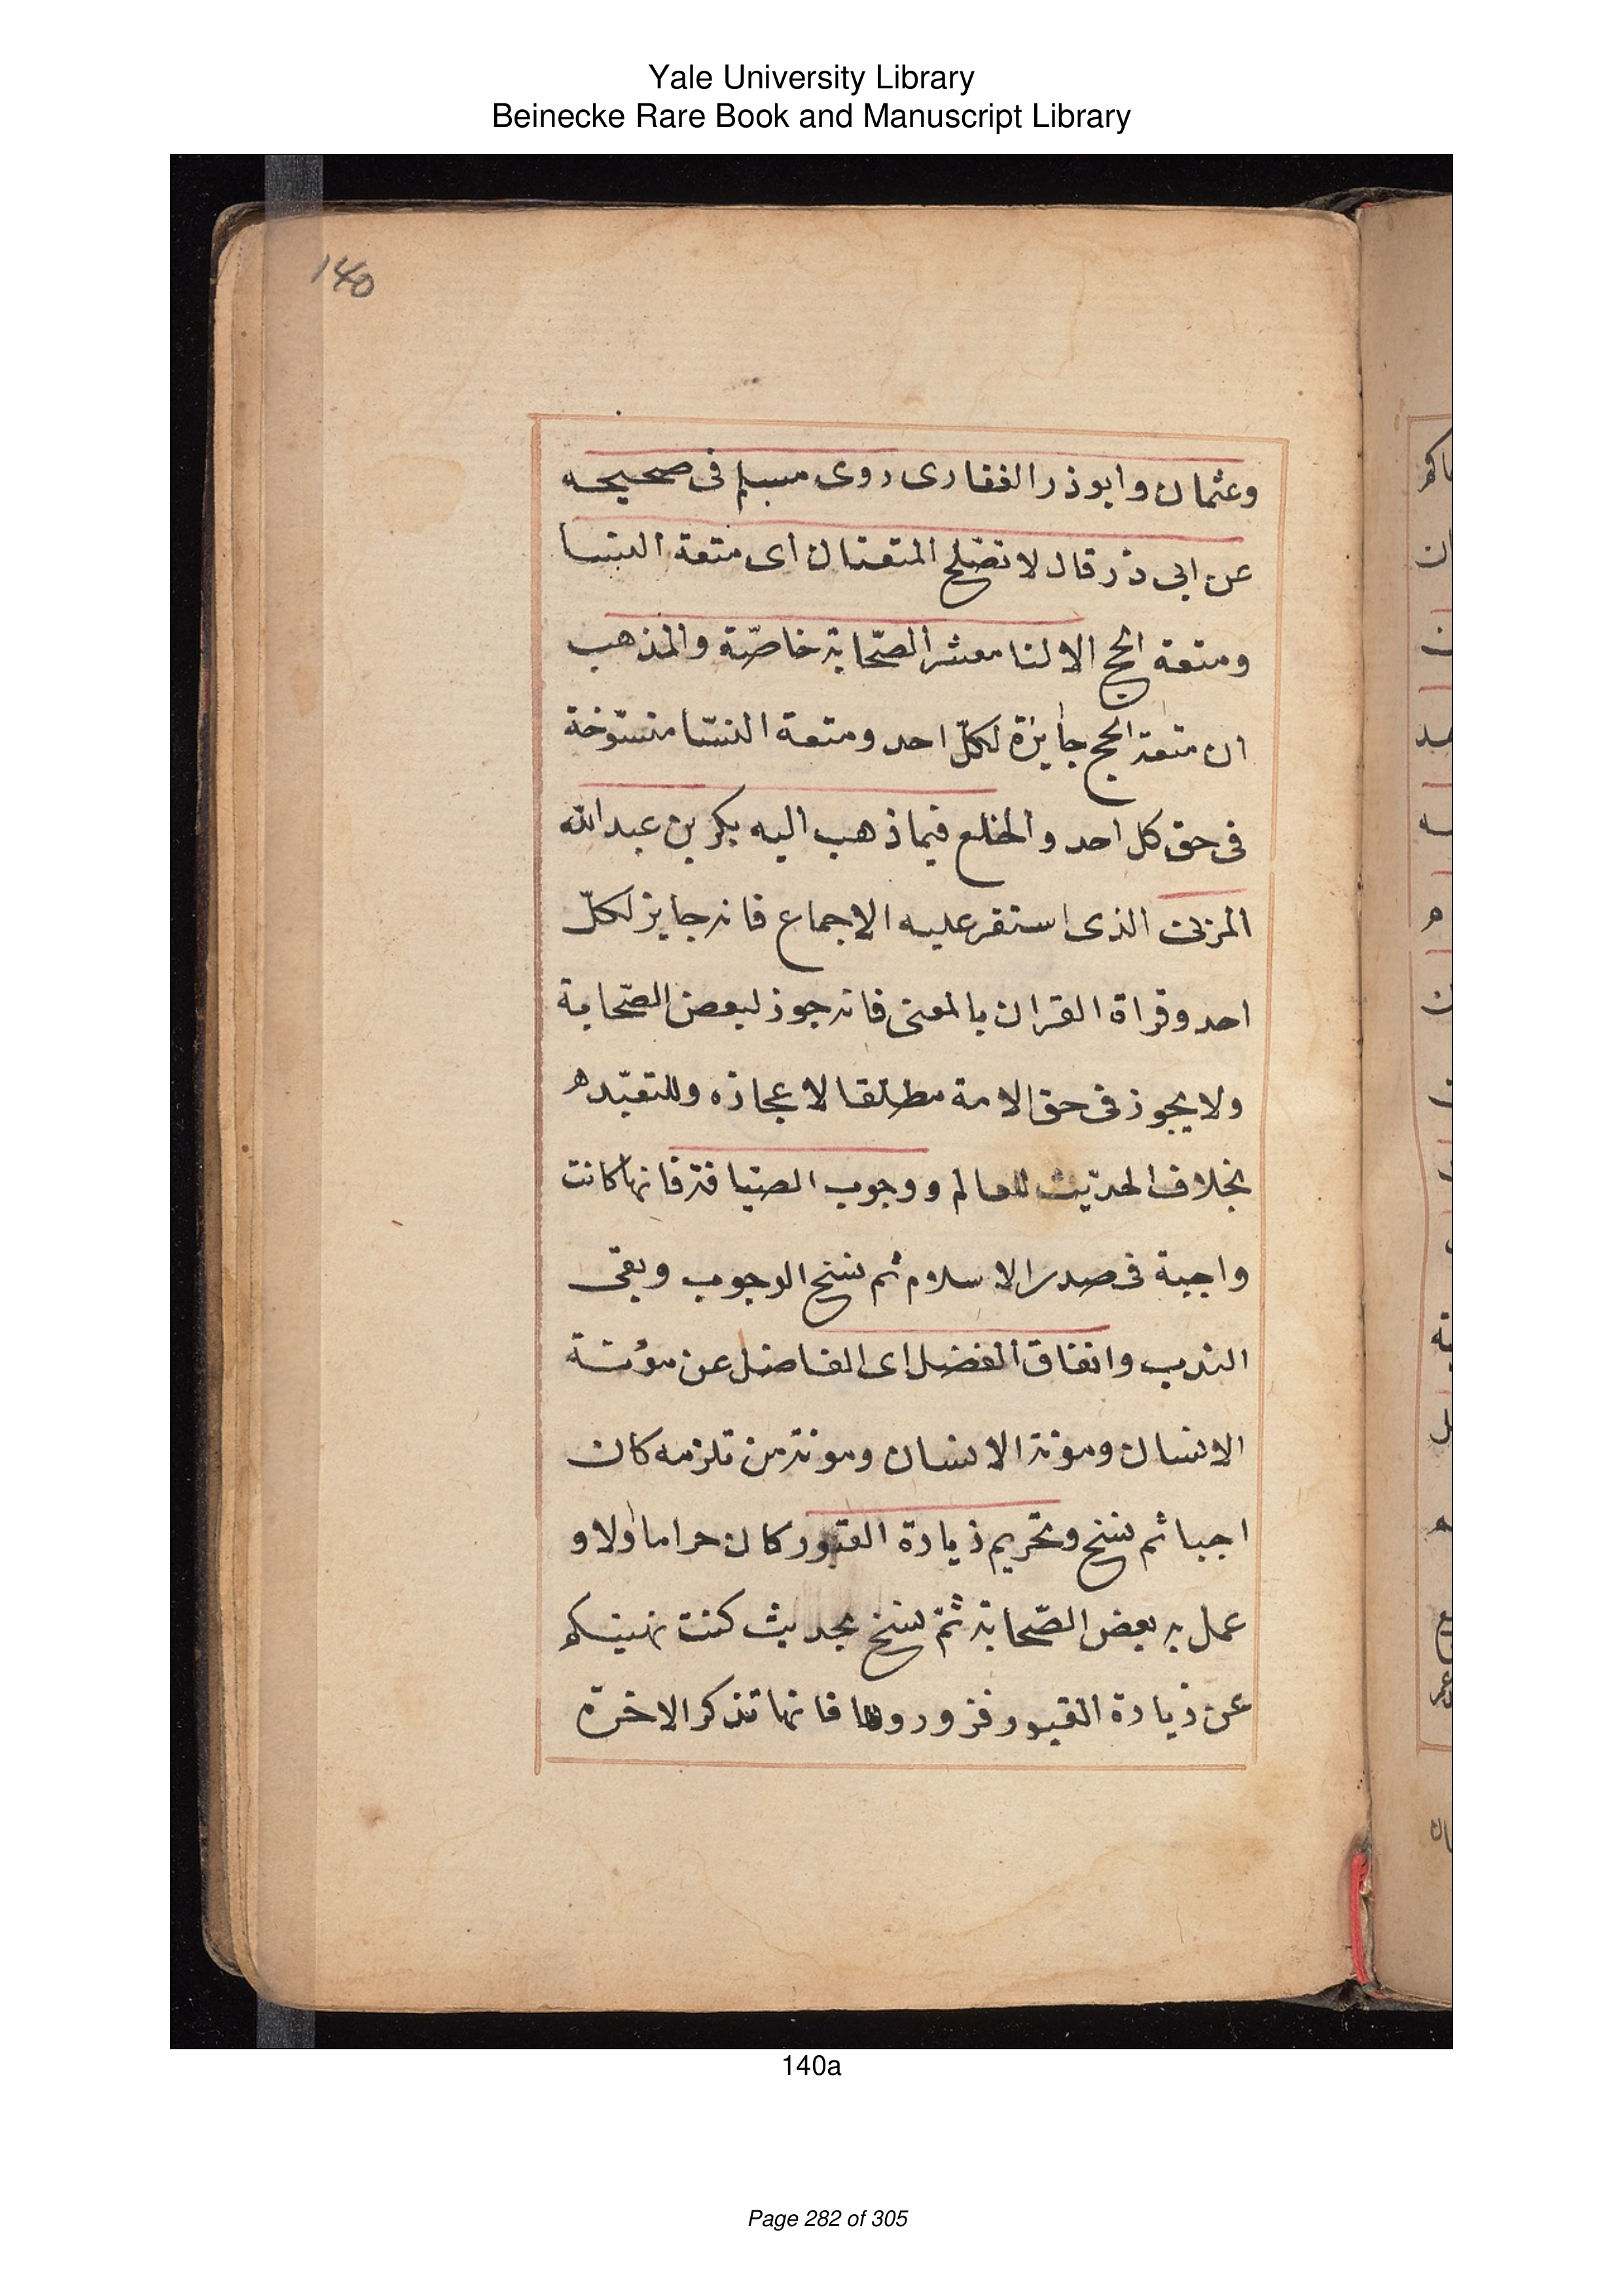 Yale University Library
Beinecke Rare Book and Manuscript Library
140
وعثمان وابوذر الغفارى روى مسلم فى صحيحه
عن ابى ذر قال لا تصلح المتعتان اى متعة النسا
ومتعة الحج الا لنا معشر الصّحابة خاصّة والمذهب
ان متعة الحج جايزة لكلّ احد ومتعة النسّا منسوخة
فى حق كل احد والخلع فيما ذهب اليه بكر بن عبد الله
المزنى الذى استقر عليه الاجماع فانه جايز لكلّ
احد وقراة القران بالمعنى فانه جوز لبعض الصّحابة
ولا يجوز فى حق الامة مطلقا لاعجازه وللتعبّد
بخلاف الحديث للعالم ووجوب الضيافة فانها كانت
واجبة فى صدر الاسلام ثم نسخ الوجوب وبقى
الندب وانفاق الفضل اى الفاضل عن مؤنة
الانسان ومؤنة الانسان ومونة من تلزمه كان
اجبا ثم نسخ وتحريم زيارة القبور كان حراما اولا و
عمل به بعض الصّحابة ثمّ نسخ بحديث كنت نهيتكم
عن زيارة القبور فزوروها فانها تذكر الاخرة
140a
Page 282 of 305